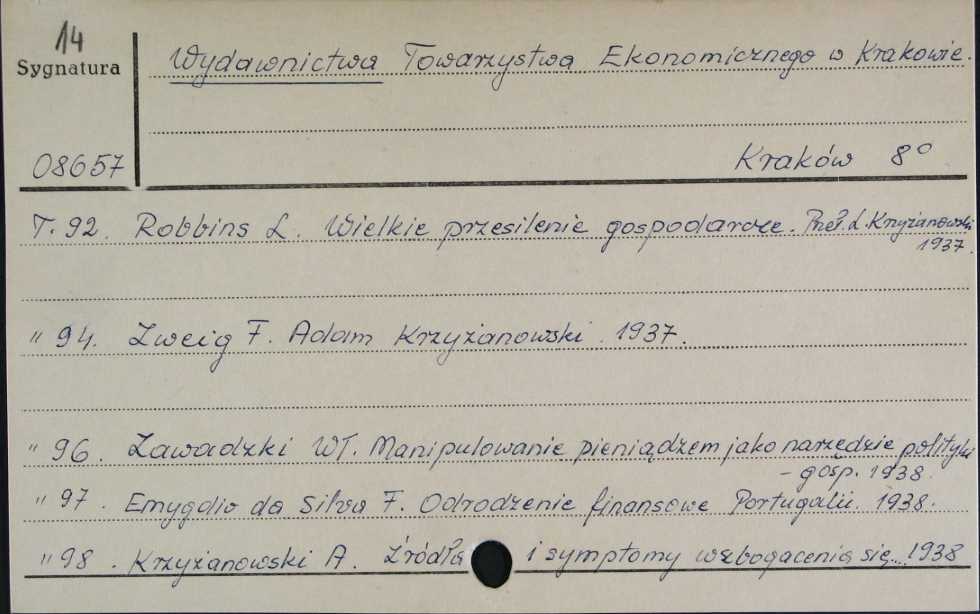 14
Sygnatura
Wydawnictwa Towarzystwa Ekonomicznego w Krakowie.
08657
Kraków 8°
T. 92. Robbins L. Wielkie przesilenie gospodarcze. Przeł. L. Krzyżanowski.
1937.
" 94. Zweig F. Adam Krzyżanowski. 1937.
" 96. Zawadzki Wł. Manipulowanie pieniądzem jako narzędzie polityki
- gosp. 1938.
" 97. Emygdio da Silva F. Odrodzenie finansowe Portugalii. 1938.
" 98. Krzyżanowski A. Źródła i symptomy wzbogacenia się... 1938